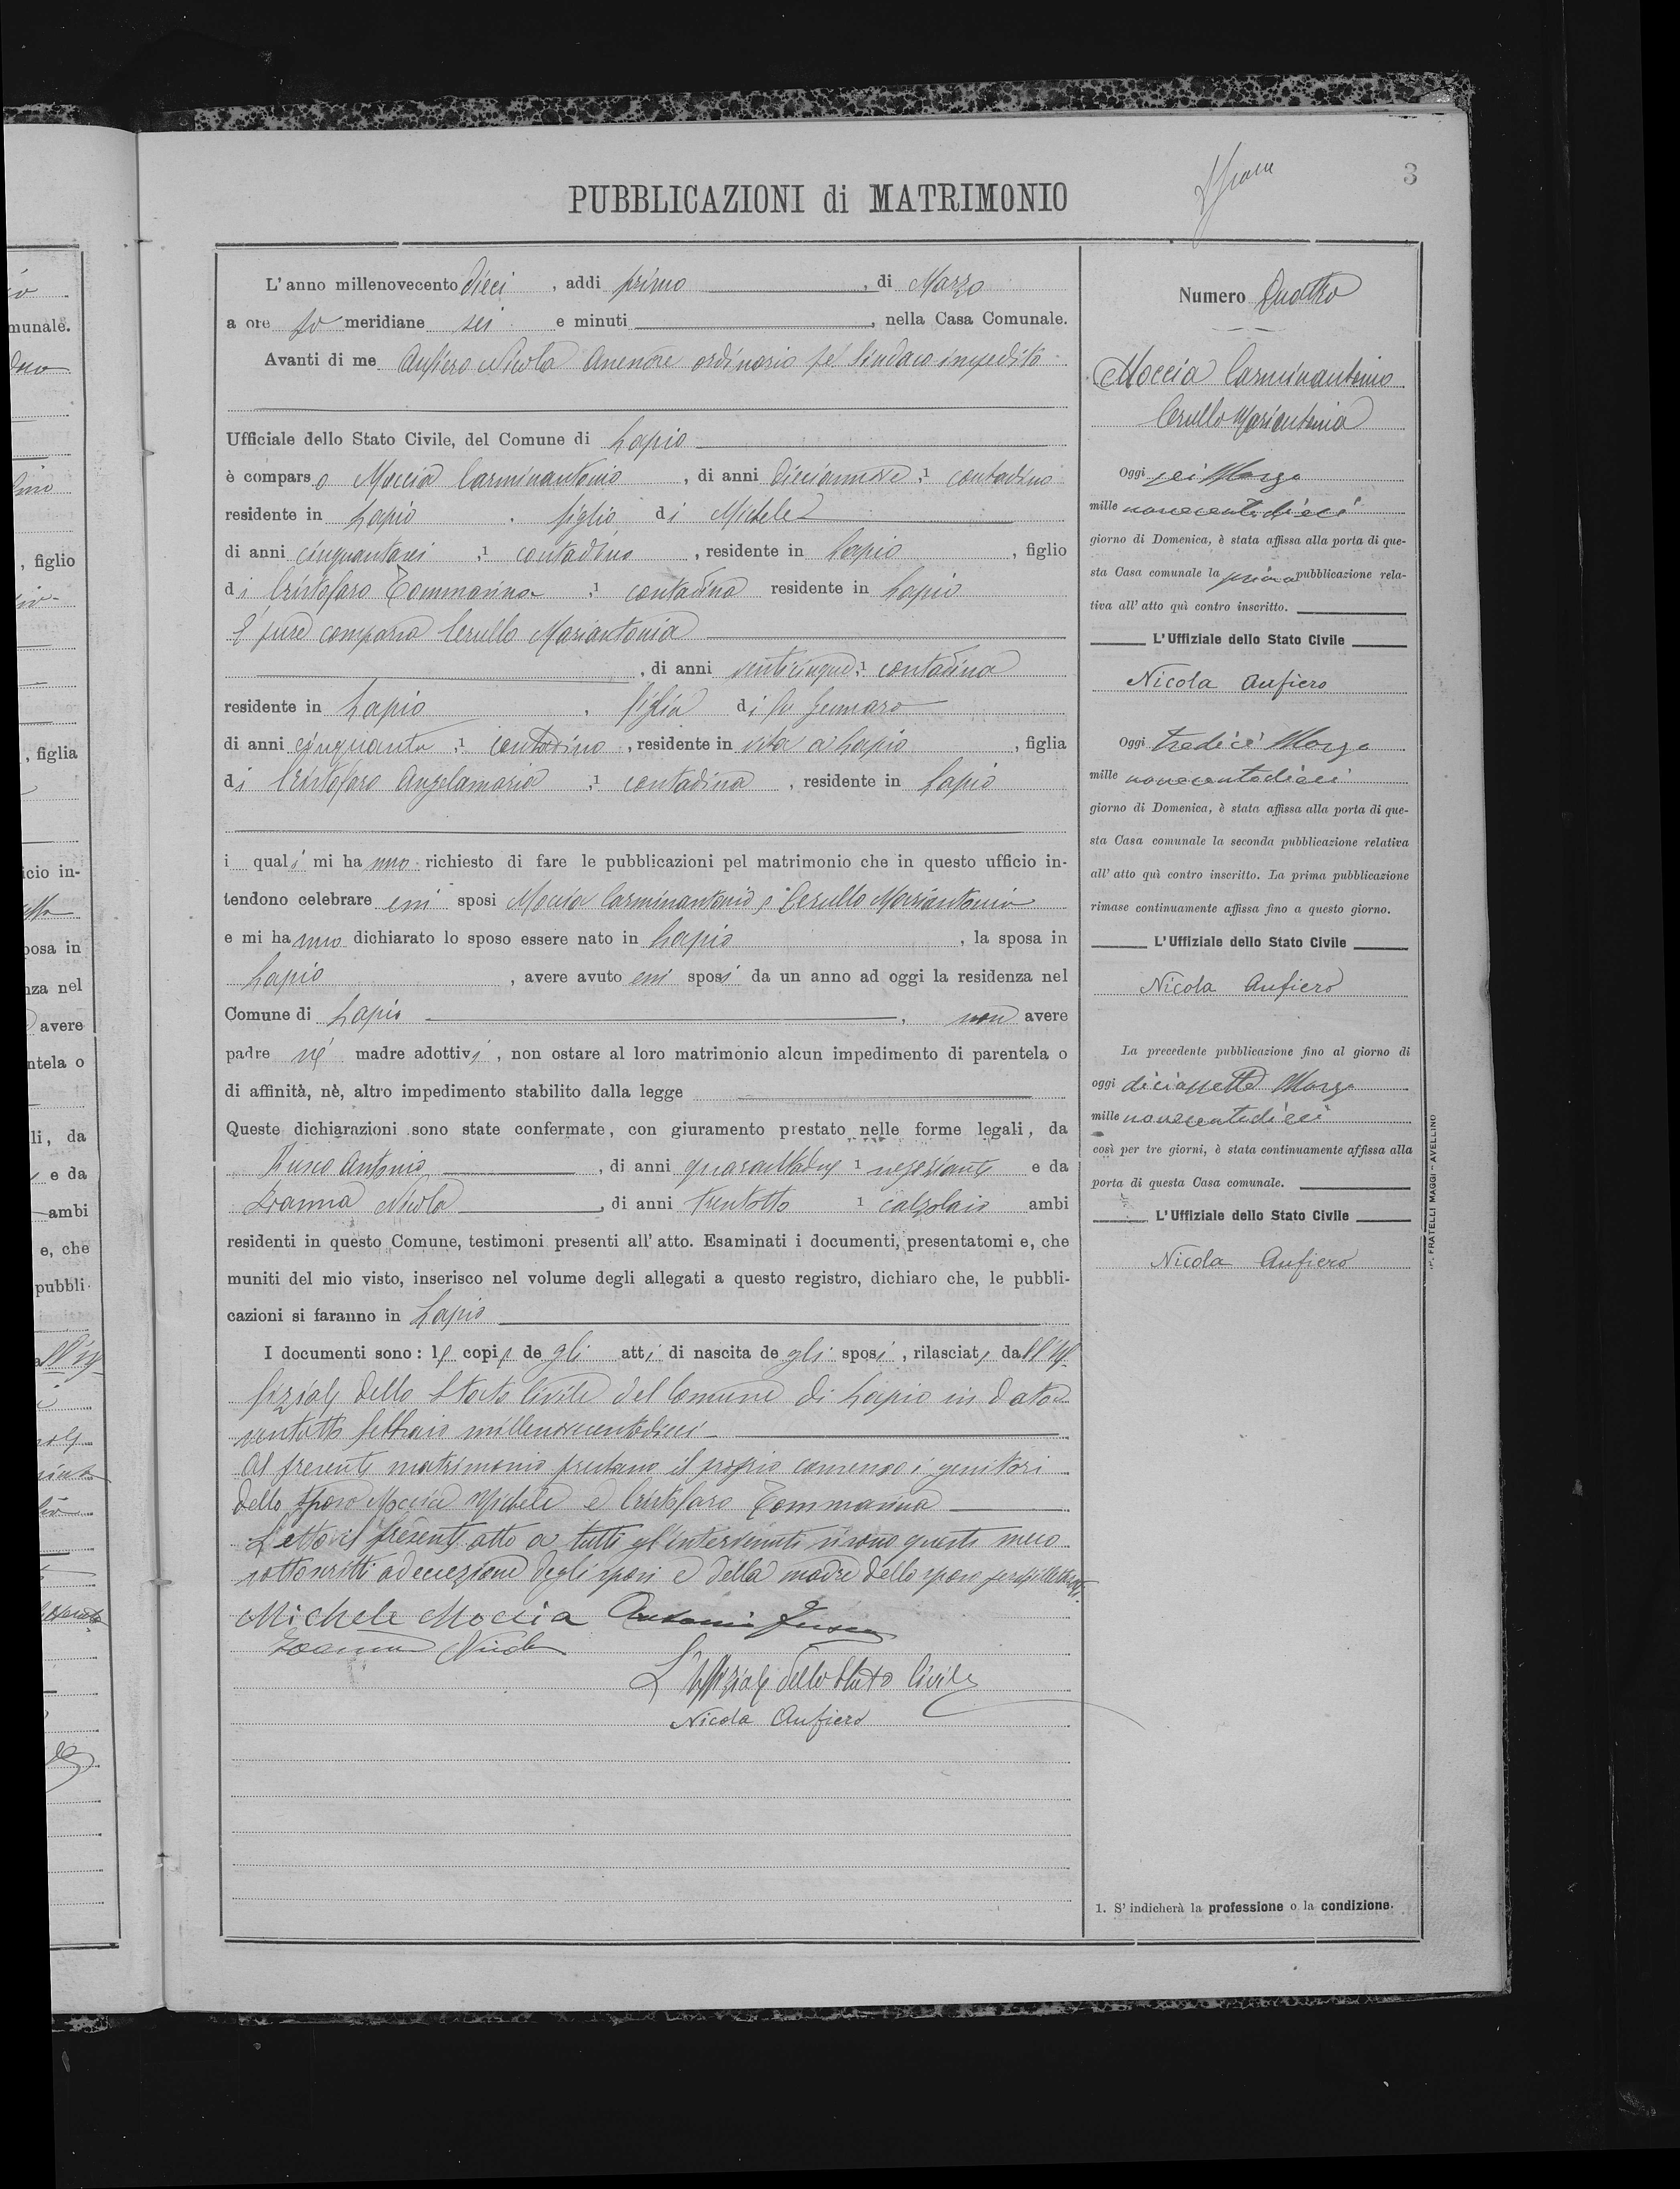 3
PUBBLICAZIONI di MATRIMONIO
L'anno millenovecento dieci, addi primo, di Marzo
a ore po meridiane sei e minuti, nella Casa Comunale.
Avanti di me Aufiero Nicola Assessore ordinario pel Sindaco impedito
Ufficiale dello Stato Civile, del Comune di Lapio
è comparso Moccia Carminantonio, di anni diciannove, 1 contadino
residente in Lapio, figlio di Michele
di anni cinquantasei, 1 contadino, residente in Lapio, figlio
di Cristofaro Tommasina, 1 contadina residente in Lapio
E pure comparsa Cerullo Mariantonia
, di anni venticinque, 1 contadina
residente in Lapio, figlia di fu Gennaro
di anni cinquanta, 1 contadino, residente in vita a Lapio, figlia
di Cristofaro Angelamaria, 1 contadina, residente in Lapio
i quali mi hanno richiesto di fare le pubblicazioni pel matrimonio che in questo ufficio in-
tendono celebrare essi sposi Moccia Carminantonio e Cerullo Mariantonia
e mi hanno dichiarato lo sposo essere nato in Lapio, la sposa in
Lapio, avere avuto essi sposi da un anno ad oggi la residenza nel
Comune di Lapio, non avere
padre nè madre adottivi, non ostare al loro matrimonio alcun impedimento di parentela o
di affinità, nè, altro impedimento stabilito dalla legge
Queste dichiarazioni sono state confermate, con giuramento prestato nelle forme legali, da
Fusco Antonio, di anni quarantadue 1 negoziante e da
Ioanna Nicola, di anni trentotto 1 calzolaio ambi
residenti in questo Comune, testimoni presenti all'atto. Esaminati i documenti, presentatomi e, che
muniti del mio visto, inserisco nel volume degli allegati a questo registro, dichiaro che, le pubbli-
cazioni si faranno in Lapio
I documenti sono: le copie degli atti di nascita degli sposi, rilasciate dall'Uf-
fiziale dello Stato Civile del Comune di Lapio in data
ventotto febbraio millenovecentodieci
Al presente matrimonio prestano il proprio consenso i genitori
dello sposo Moccia Michele e Cristofaro Tommasina
Letto il presente atto a tutti gl'intervenuti si sono questi meco
sottoscritti ad eccezione degli sposi e della madre dello sposo perchè illetterati.
Michele Moccia Antonio Fusco
Ioanna Nicola
L'Uffiziale dello Stato Civile
Nicola Aufiero
Numero Quattro
Moccia Carminantonio
Cerullo Mariantonia
Oggi sei Marzo
mille novecentodieci
giorno di Domenica, è stata affissa alla porta di que-
sta Casa comunale la prima pubblicazione rela-
tiva all'atto quì contro inscritto.
L'Uffiziale dello Stato Civile
Nicola Aufiero
Oggi tredici Marzo
mille novecentodieci
giorno di Domenica, è stata affissa alla porta di que-
sta Casa comunale la seconda pubblicazione relativa
all'atto quì contro inscritto. La prima pubblicazione
rimase continuamente affissa fino a questo giorno.
L'Uffiziale dello Stato Civile
Nicola Aufiero
La precedente pubblicazione fino al giorno di
oggi diciassette Marzo
mille novecentodieci
così per tre giorni, è stata continuamente affissa alla
porta di questa Casa comunale.
L'Uffiziale dello Stato Civile
Nicola Aufiero
1. S'indicherà la professione o la condizione.
FRATELLI MAGGI - AVELLINO
munale.
, figlio
, figlia
icio in-
posa in
nza nel
avere
ntela o
li, da
e da
ambi
e, che
pubbli-